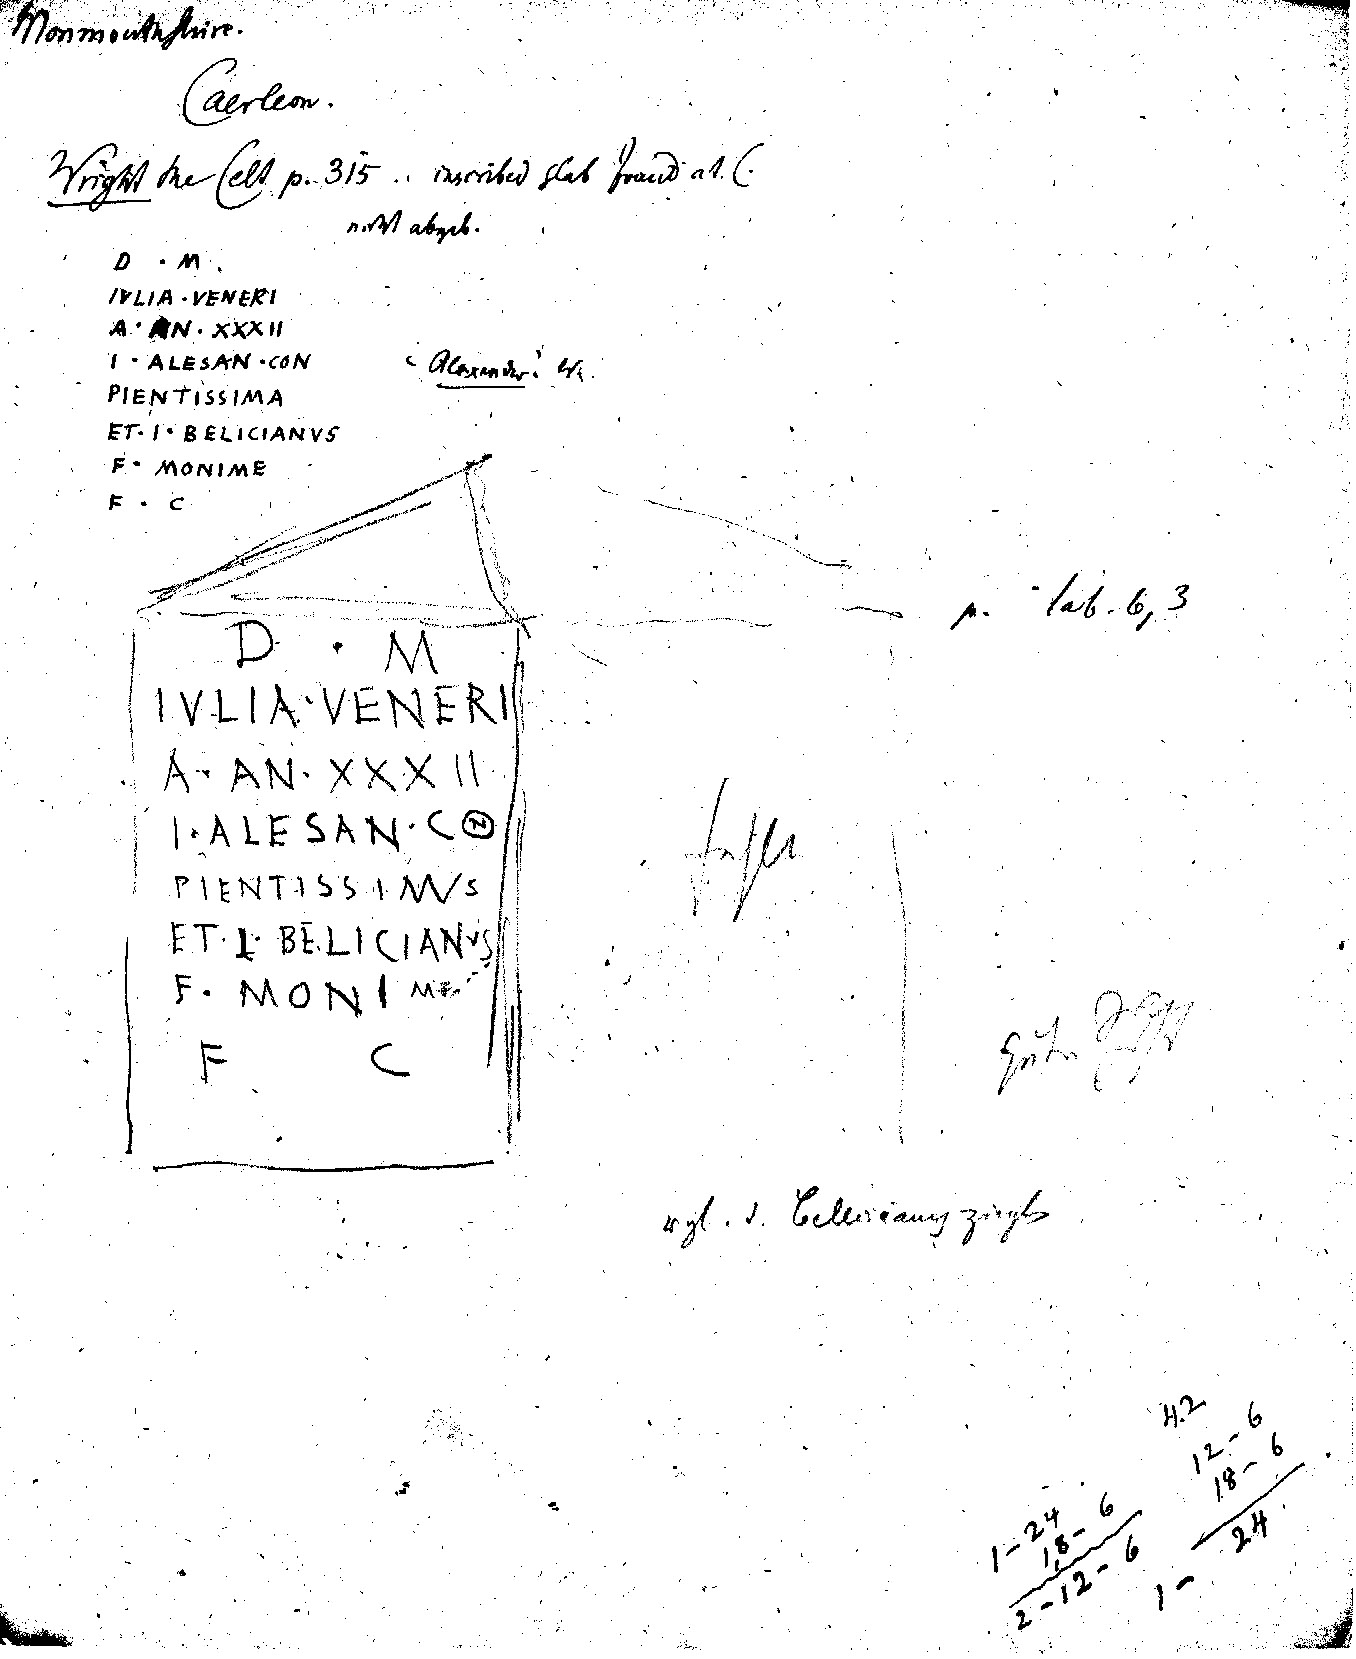 Monmouthshire.
Caerleon.
Wright the Celt p. 315 .. inscribed slab found at C.
nicht abgeb.
D · M.
IVLIA · VENERI
A · AN · XXXII
I · ALESAN · CON
PIENTISSIMA
ET · I · BELICIANVS
F · MONIME
F · C
'Alexander.' Wr.
D · M
IVLIA · VENERI
A · AN · XXXII
I · ALESAN · CON
PIENTISSIMVS
ET · I · BELICIANVS
F · MONIME
F C
tab. 6, 3
vgl. d. Bellicianus
4.2
12 - 6
18 - 6
1 - 24
1 - 24
18 - 6
2 - 12 - 6